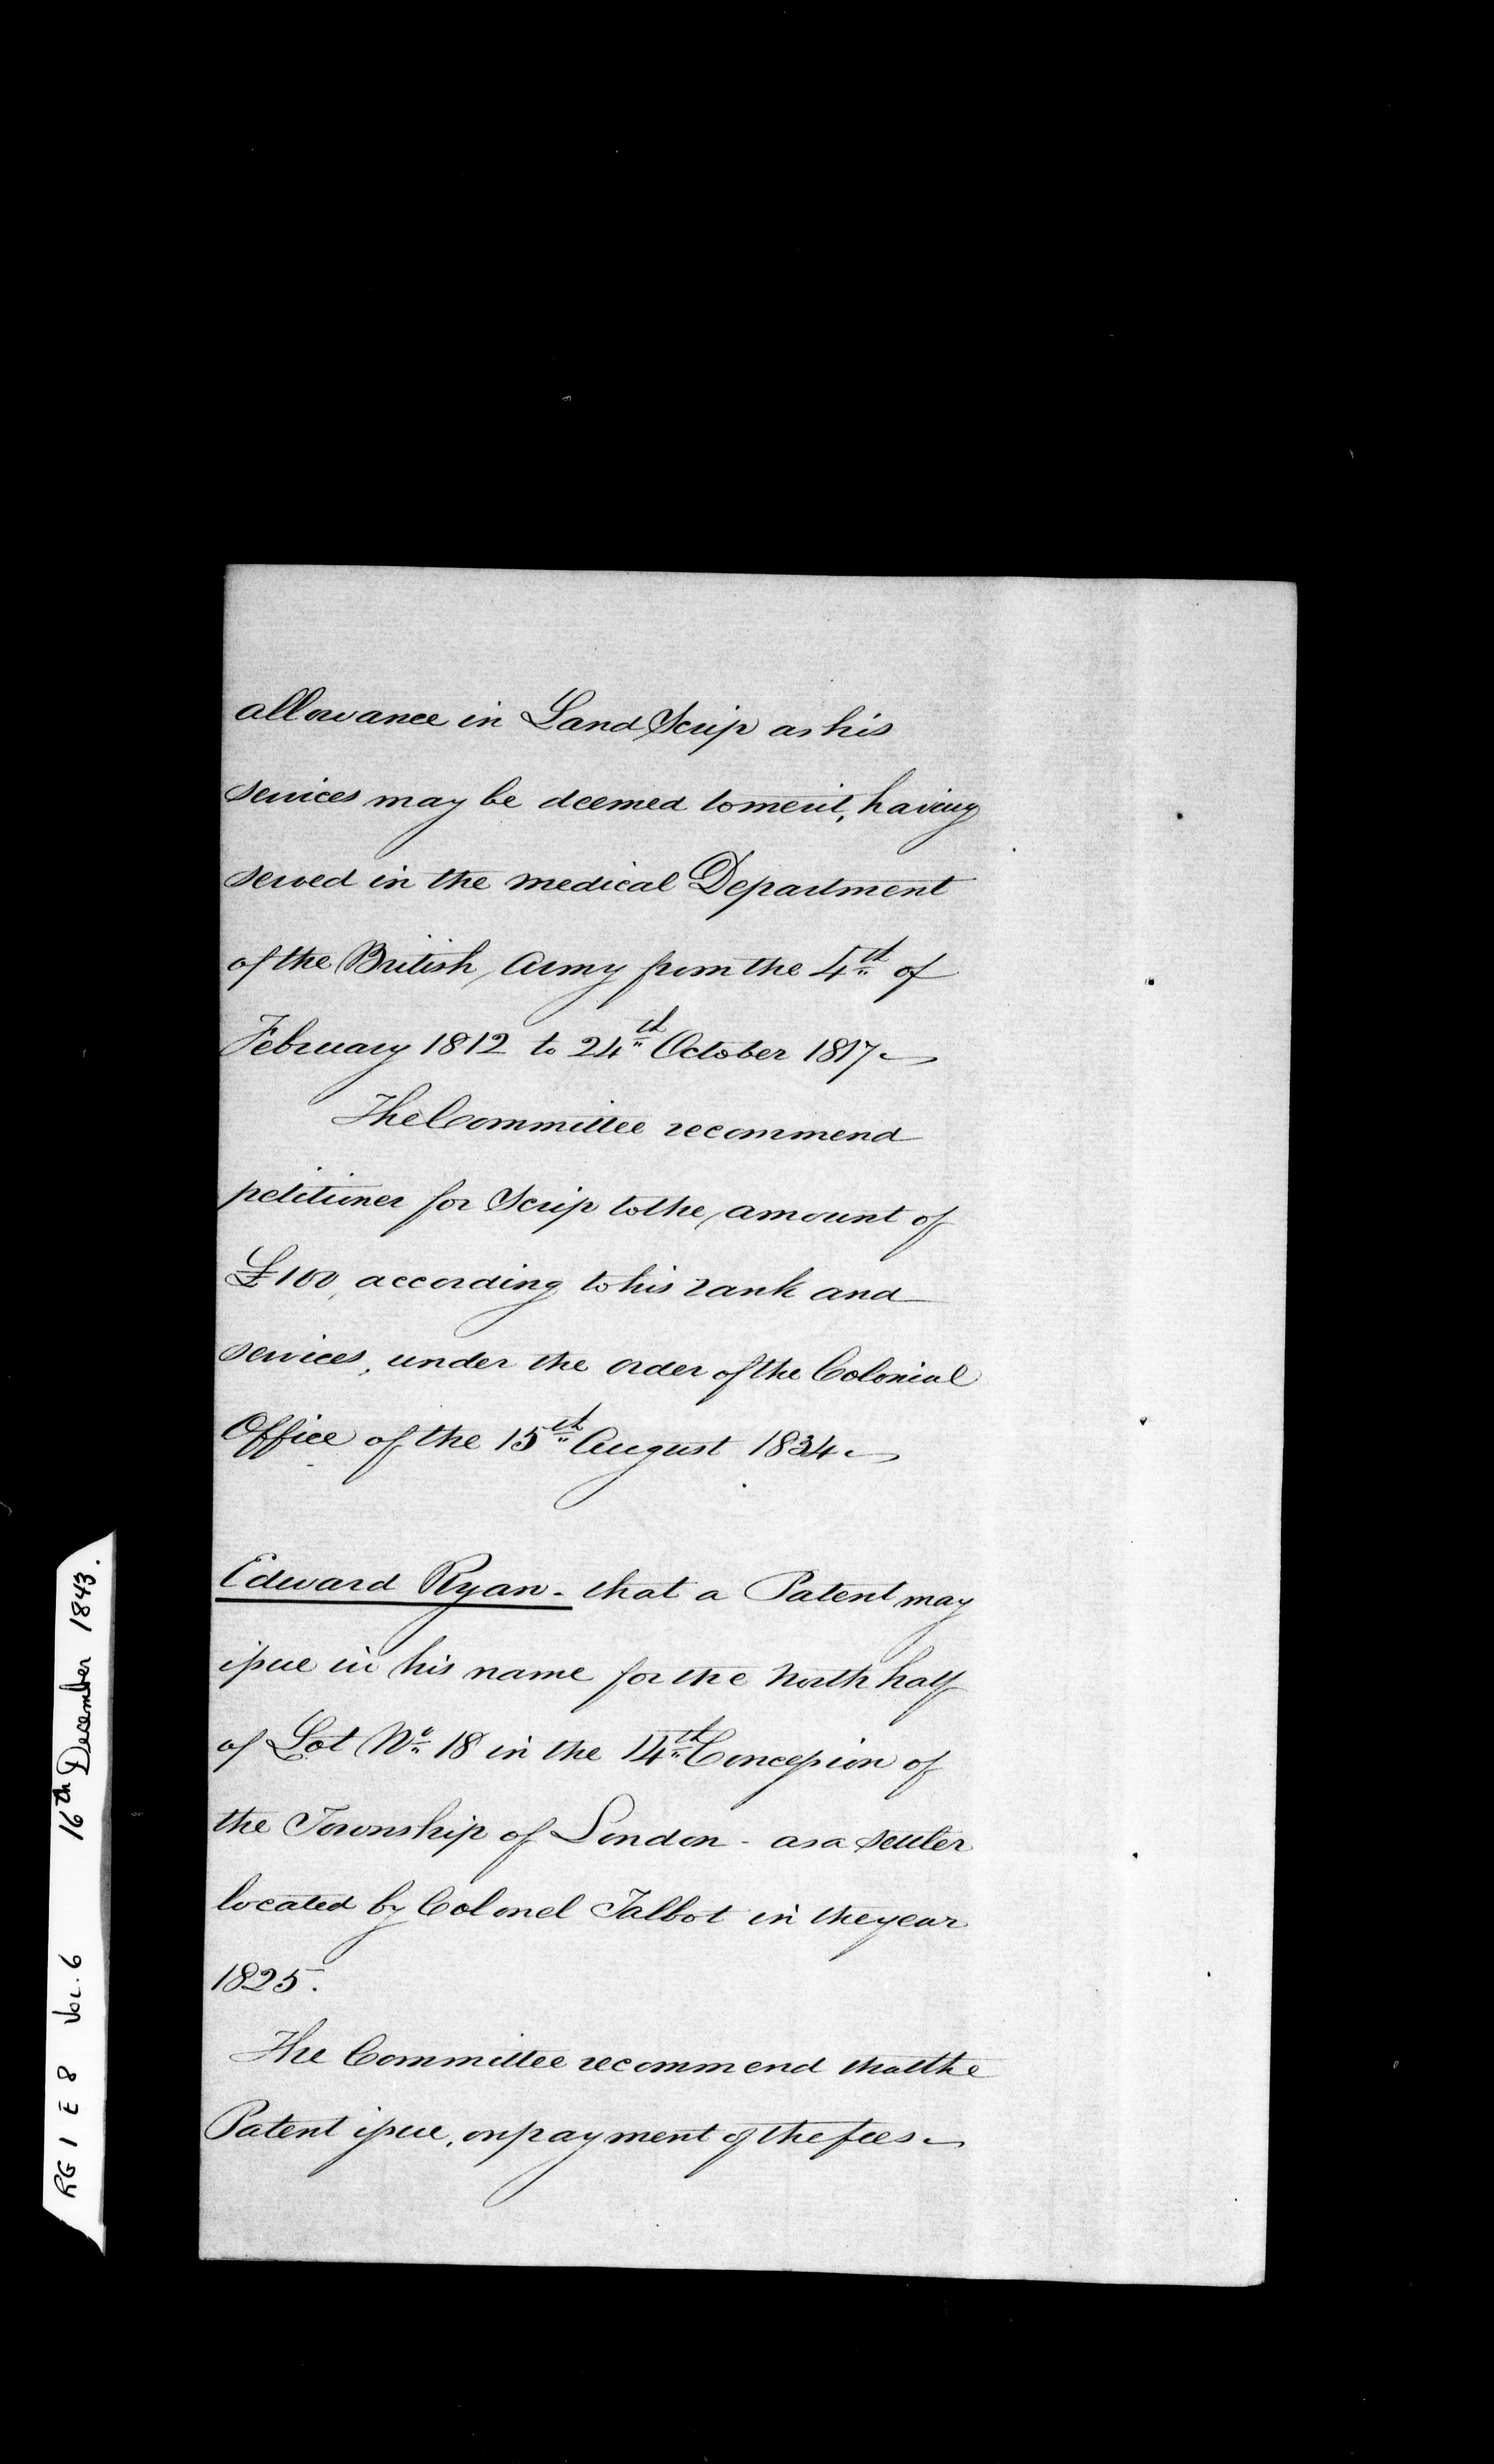 allowance in Land Scrip as his
services may be deemed to merit, having
served in the medical Department
of the British Army from the 4th of
February 1812 to 24th October 1817
The Committee recommend
petitioner for Scrip to the amount of
£100, according to his rank and
services, under the order of the Colonial
Office of the 15th August 1834
Edward Ryan - that a Patent may
issue in his name for the North half
of Lot No 18 in the 14th Concession of
the Township of London - as a settler
located by Colonel Talbot in the year
1825.
The Committee recommend that the
Patent issue, on payment of the fees
RG 1 E 8 Vol. 6 16th December 1843.